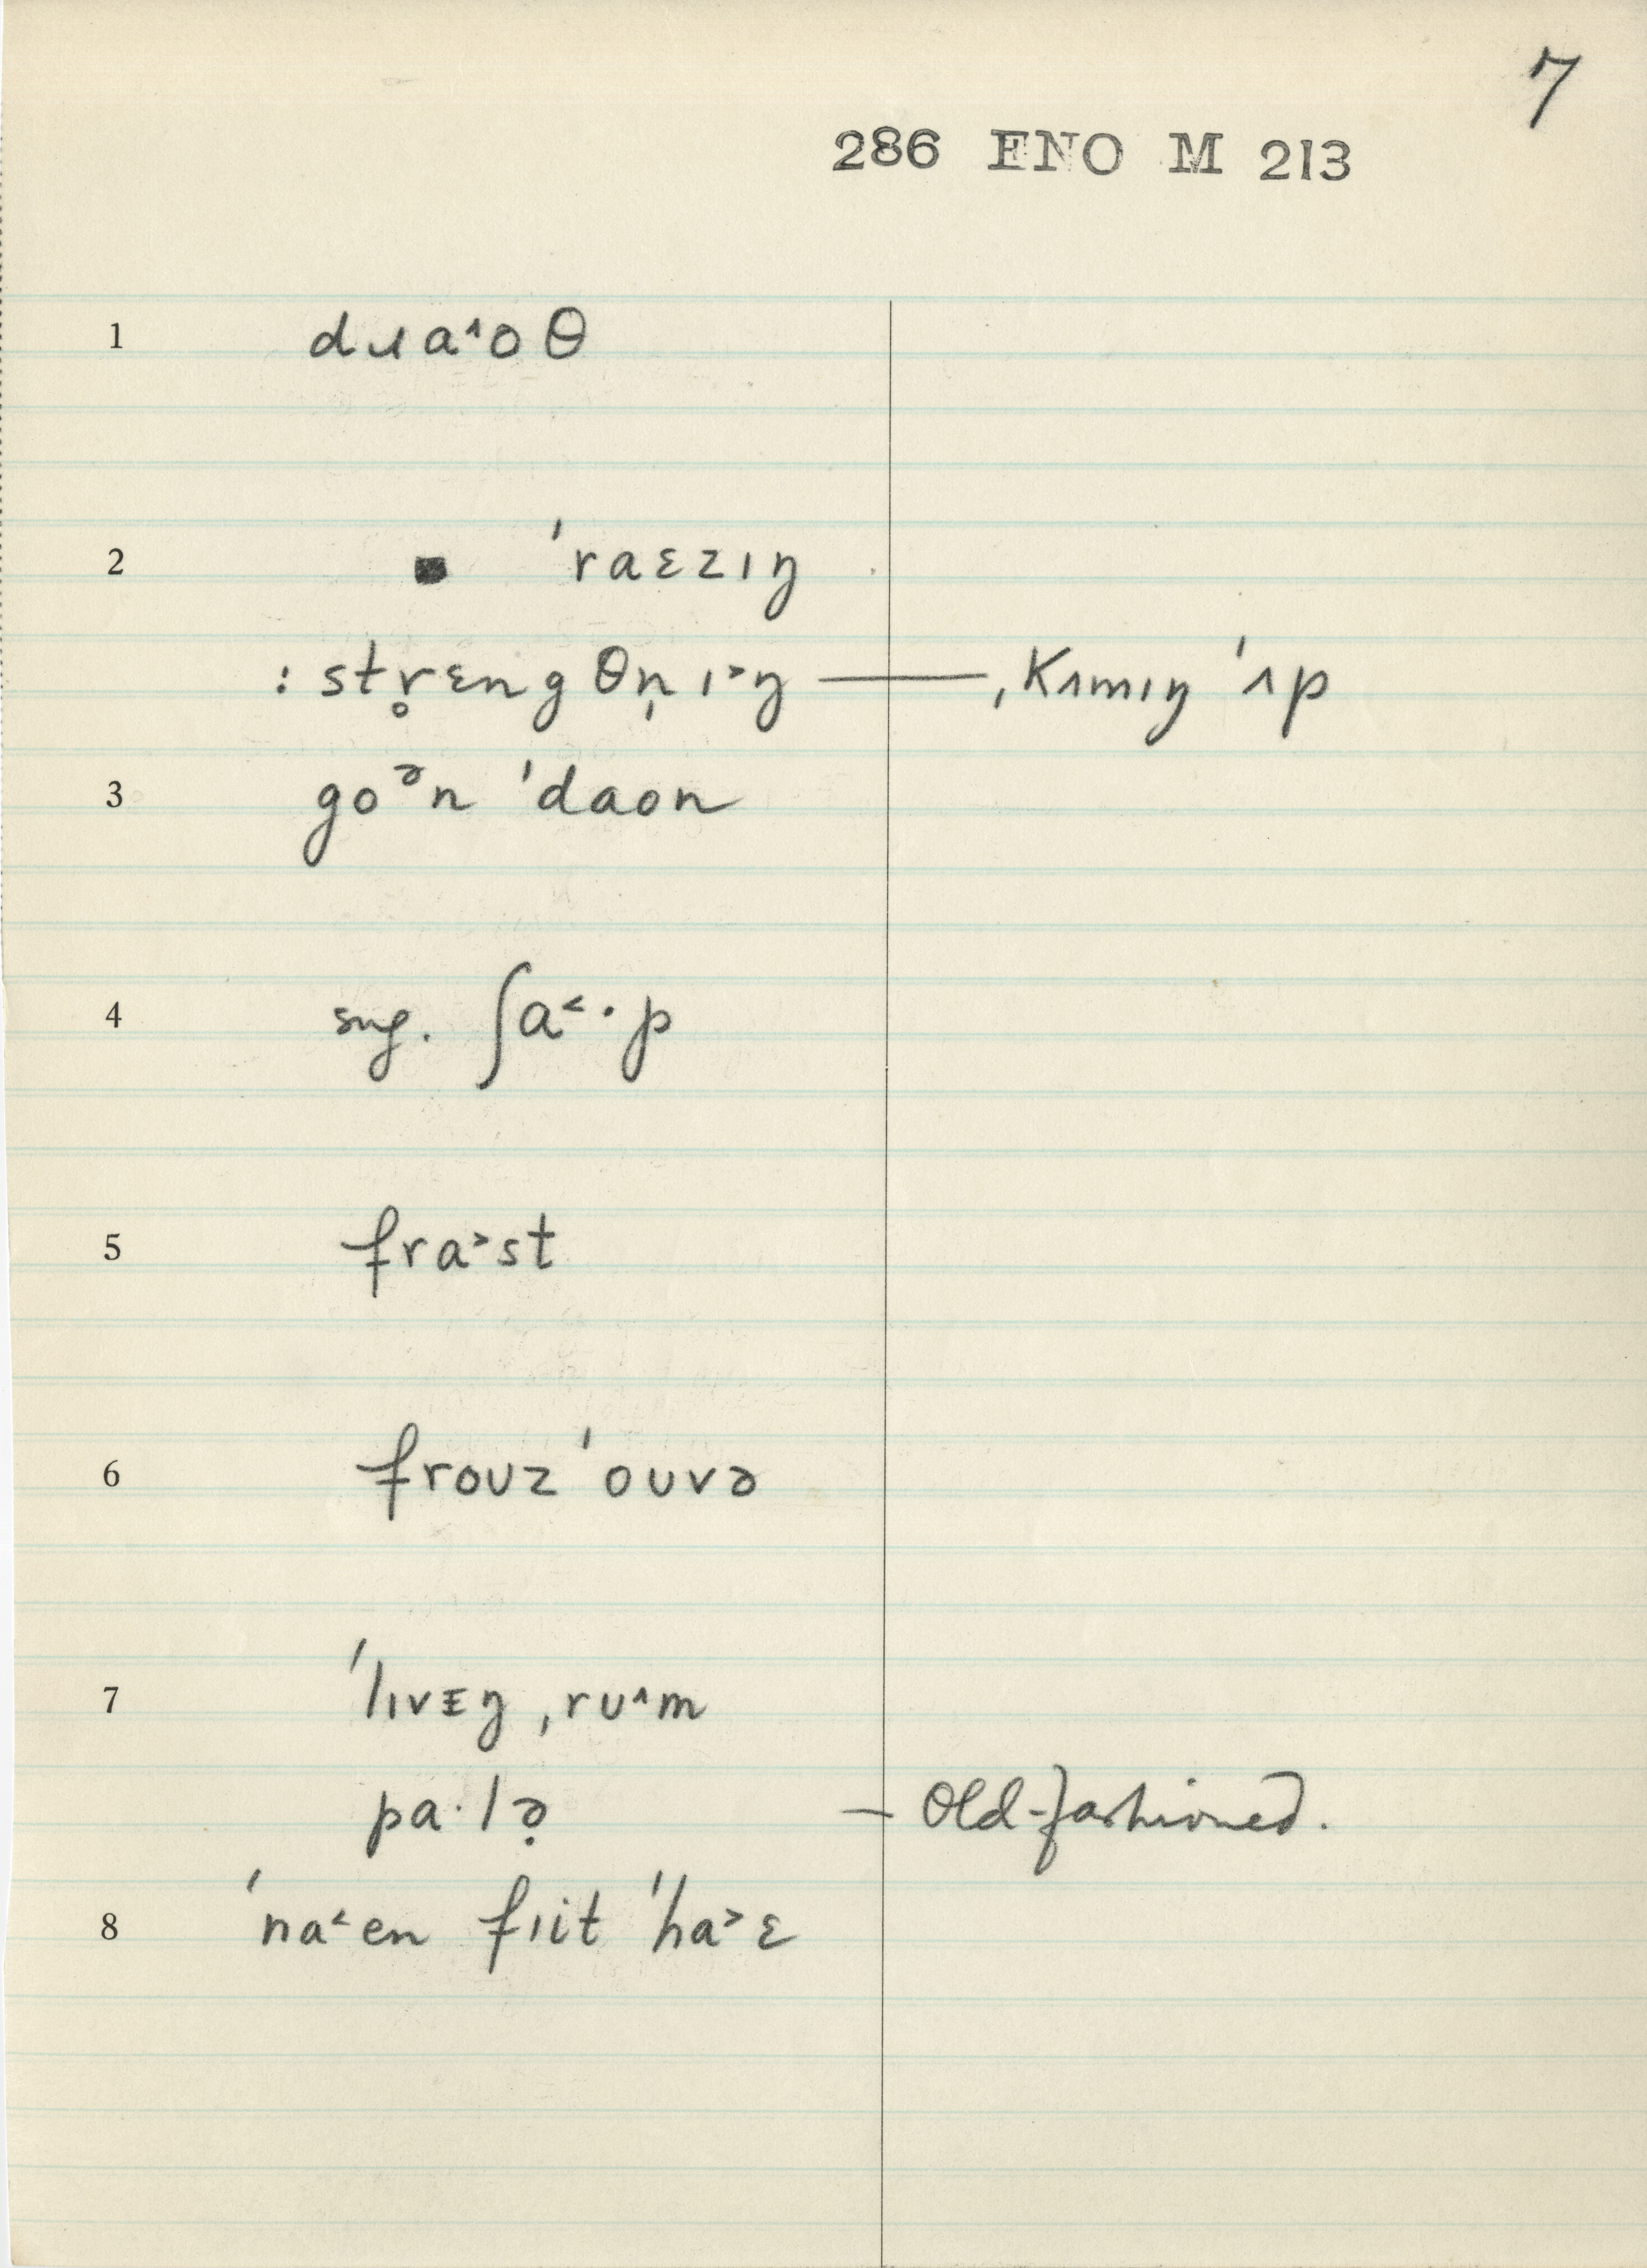 7
286 ENO M 213
1 dɹa˄oθ
2 ■ ˈraɛzɪŋ
: str̥ɛngθn̩ɪ˃ŋ — ˌkʌmɪŋ ˈʌp
3 goᵊn ˈdaon
4 sug. ʃa˂·p
5 fra˃st
6 frouz ˈouvə
7 ˈlɪvᵻŋ ˌru˄m
pa·lə̣ — Old-fashioned.
8 ˈna˂en fɪit ˈha˃ɛ